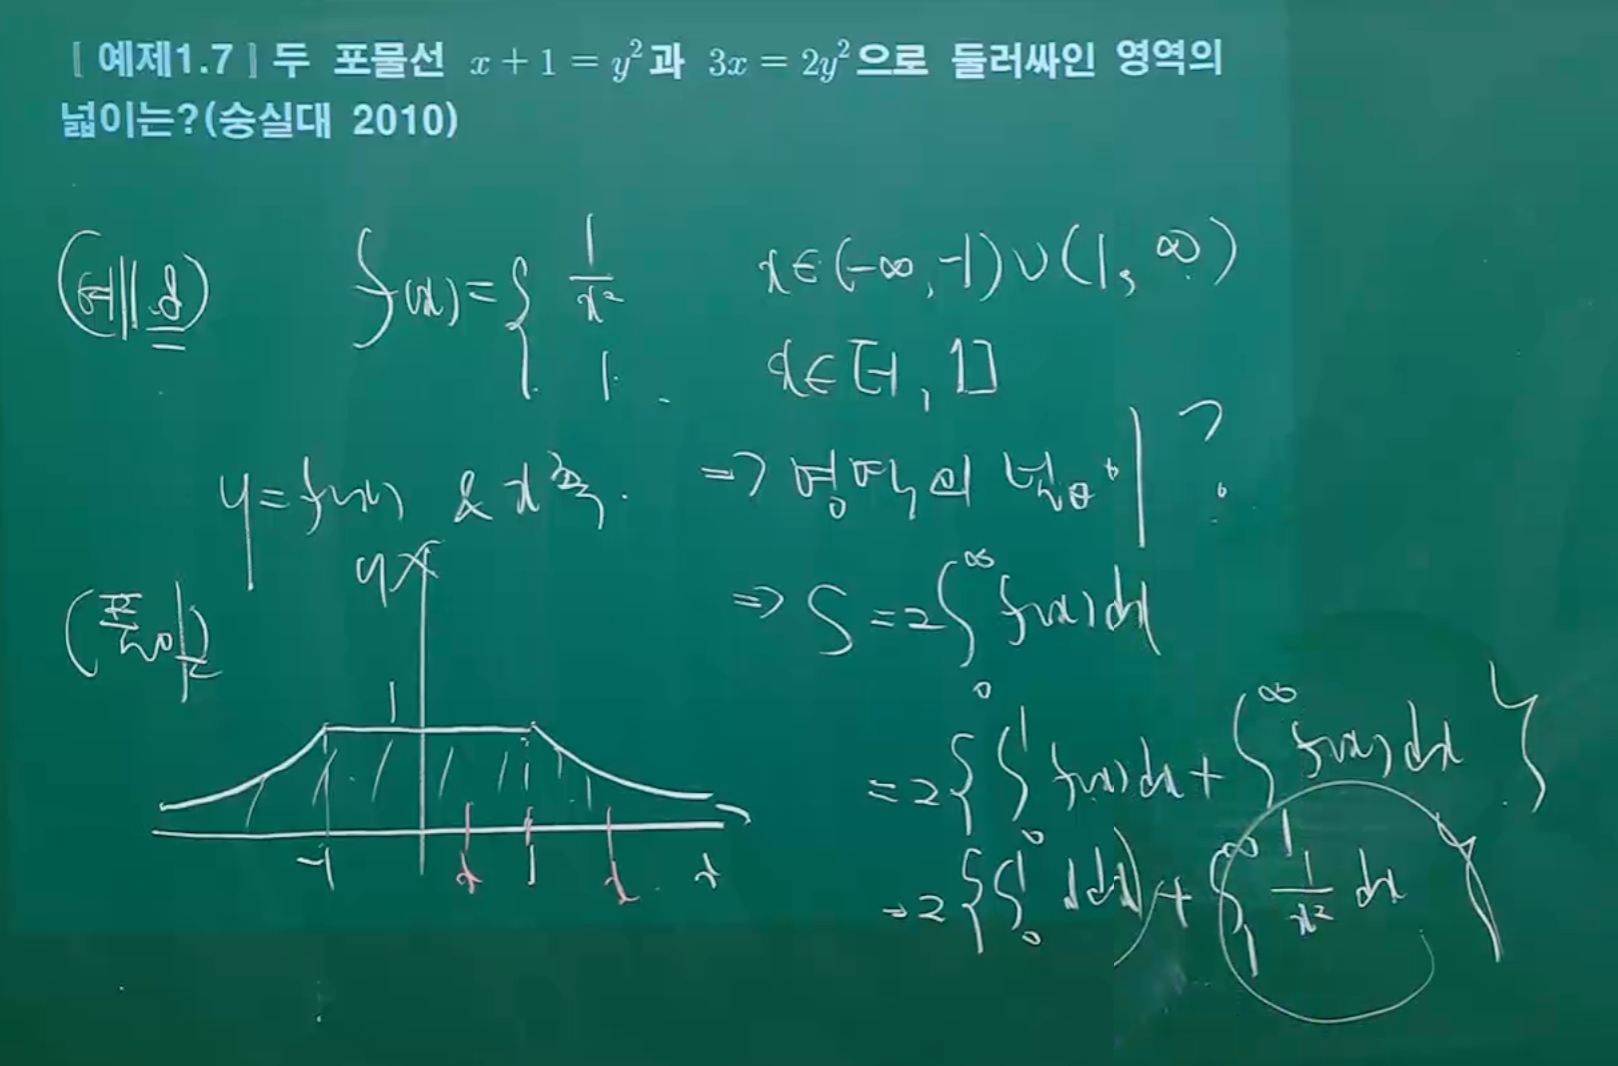 [예제1.7] 두 포물선 x + 1 = y²과 3x = 2y²으로 둘러싸인 영역의
넓이는?(숭실대 2010)
f(x) = { 1/x²  x ∈ (-∞, -1) ∪ (1, ∞)
1  x ∈ [-1, 1]
y = f(x) & x축. ⇒ 영역의 넓이?
(풀이)
⇒ S = 2∫₀^∞ f(x)dx
= 2{∫₀¹ f(x)dx + ∫₁^∞ f(x)dx}
= 2{∫₀¹ 1dx + ∫₁^∞ 1/x² dx}
y
1
-1 x 1 x x